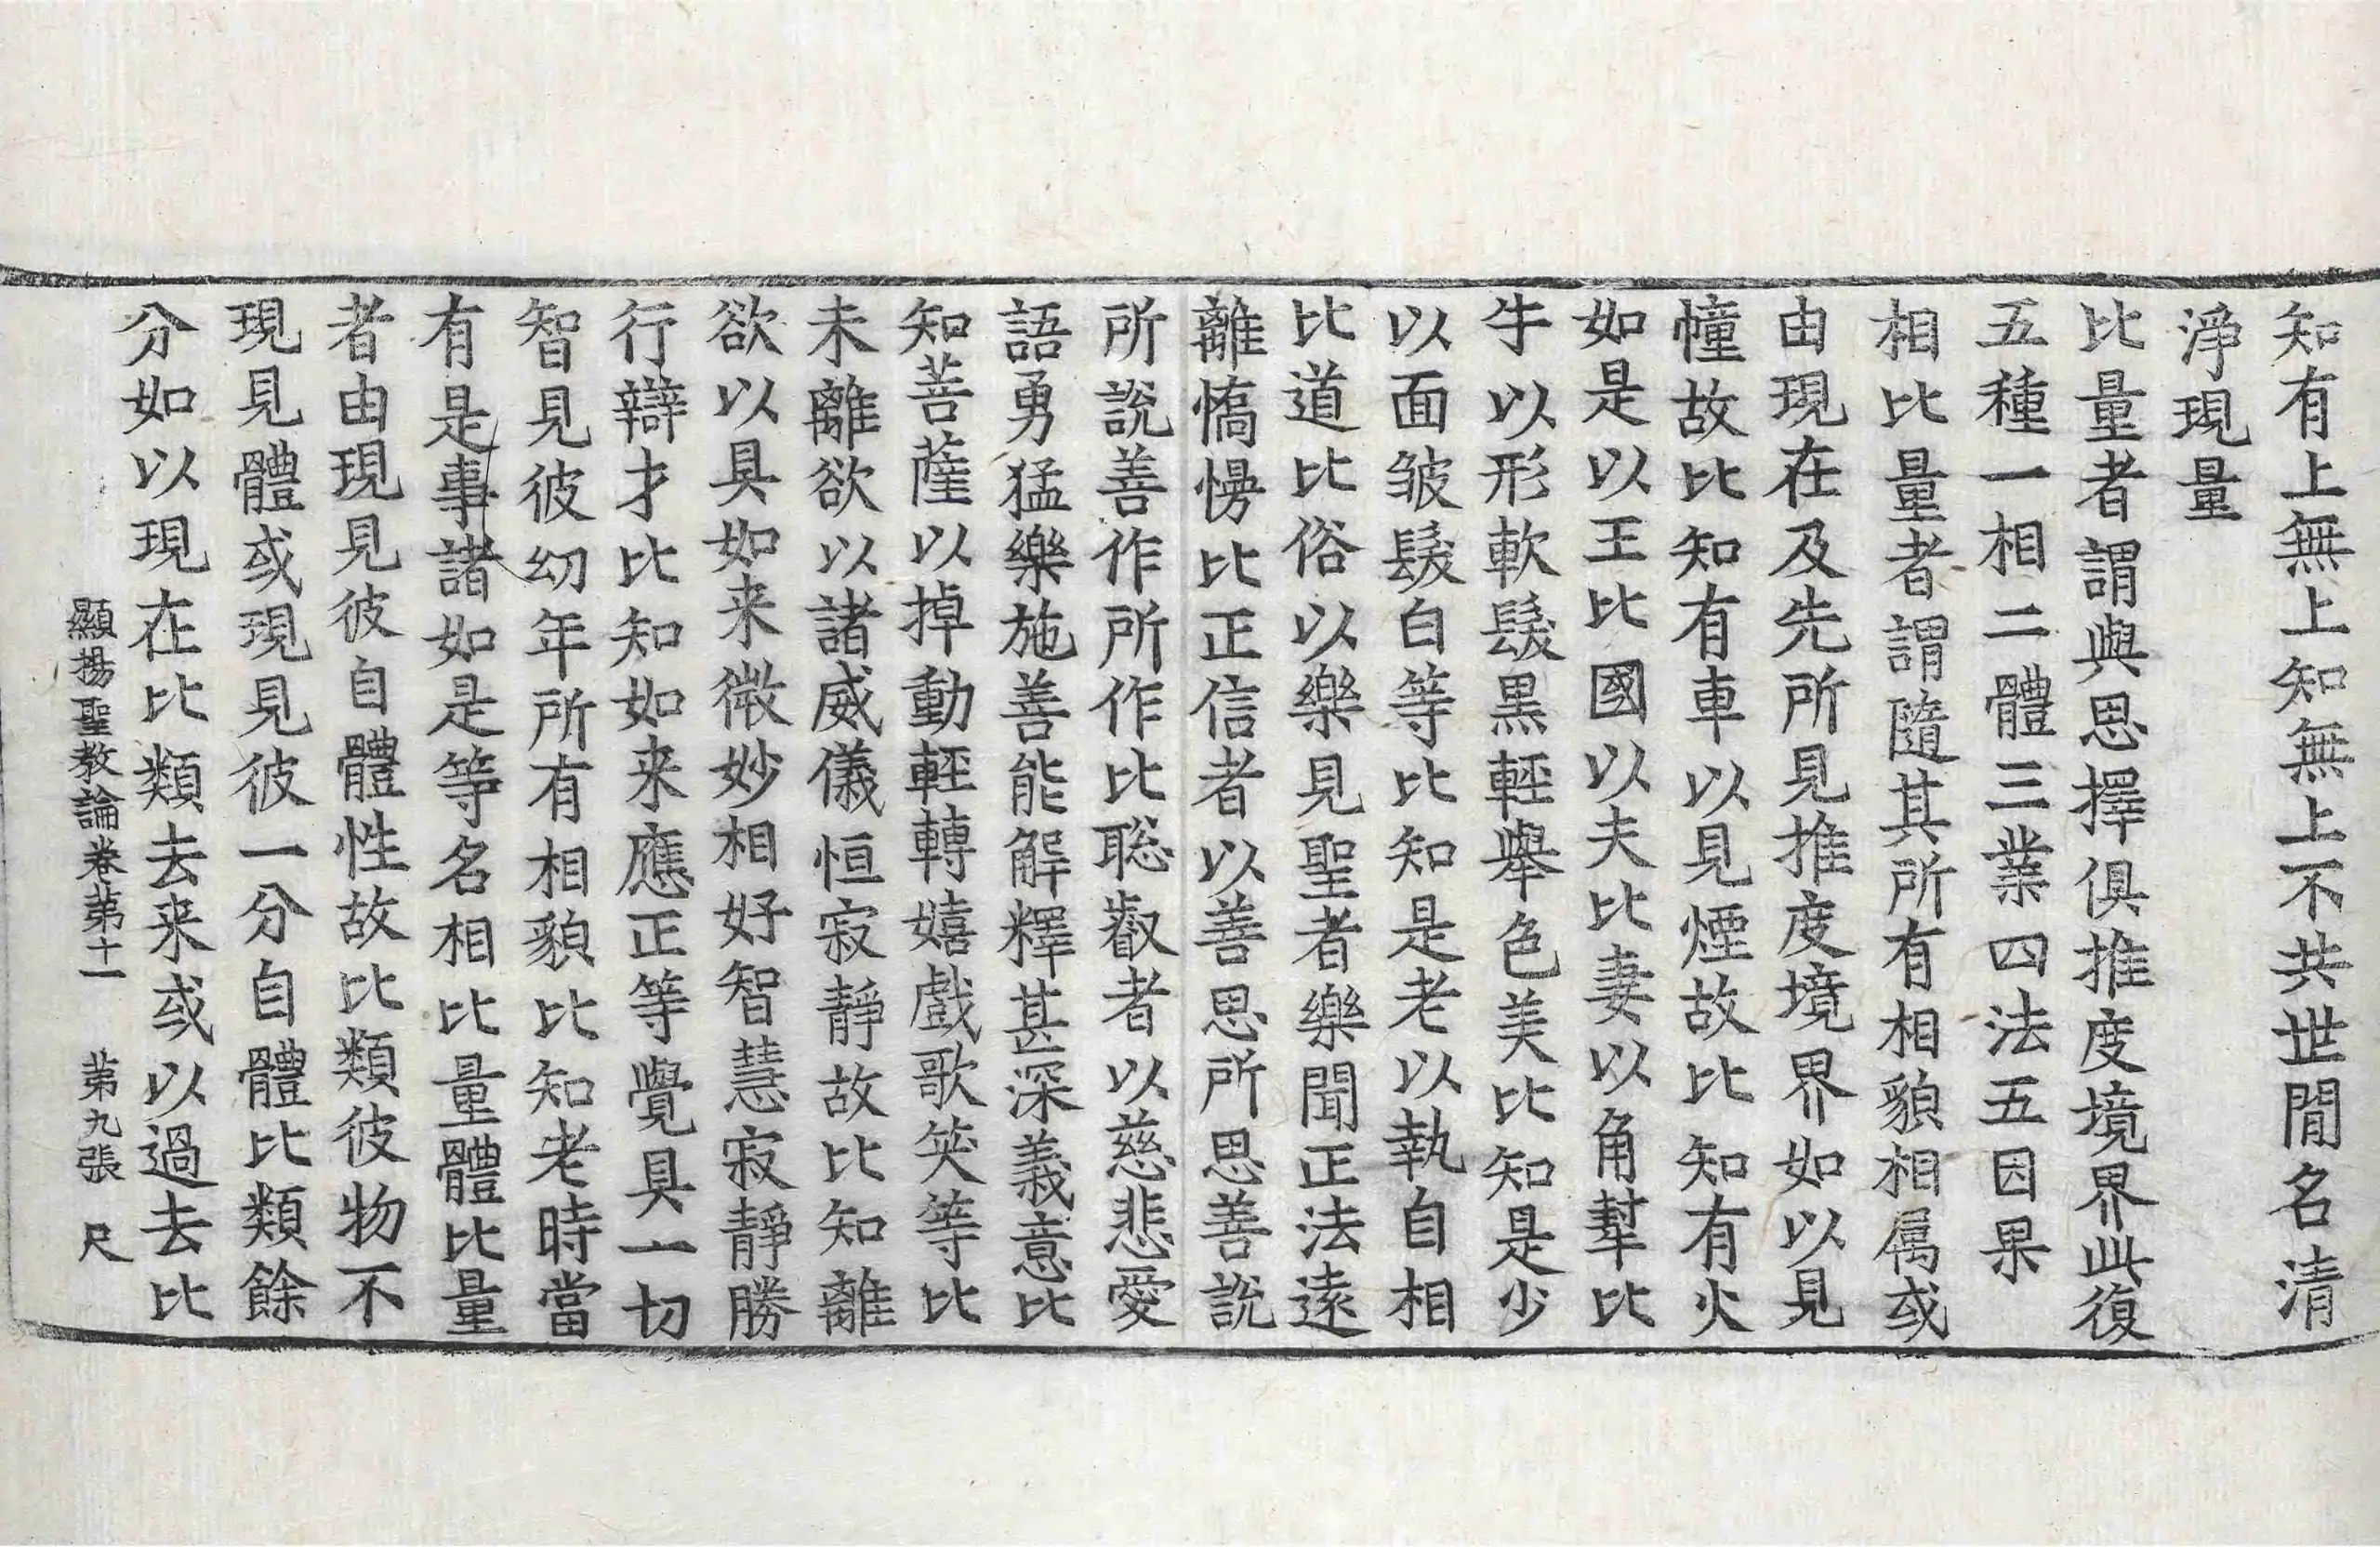 知有上無上知無上不共世間名清
淨現量
比量者謂與思擇俱推度境界此復
五種一相二體三業四法五因果
相比量者謂隨其所有相貌相属或
由現在及先所見推度境界如以見
幢故比知有車以見煙故比知有火
如是以王比國以夫比妻以角犎比
牛以形軟髮黒輕舉色美比知是少
以面皺髮白等比知是老以執自相
比道比俗以樂見聖者樂聞正法遠
離慳慢比正信者以善思所思善說
所說善作所作比聡叡者以慈悲愛
語勇猛樂施善能解釋甚深義意比
知菩薩以掉動輕轉嬉戲歌笑等比
未離欲以諸威儀恒寂靜故比知離
欲以具如来微妙相好智慧寂靜勝
行辯才比知如来應正等覺具一切
智見彼幼年所有相貌比知老時當
有是事諸如是等名相比量體比量
者由現見彼自體性故比類彼物不
現見體或現見彼一分自體比類餘
分如以現在比類去来或以過去比
顯揚聖教論卷苐十一 苐九張 尺